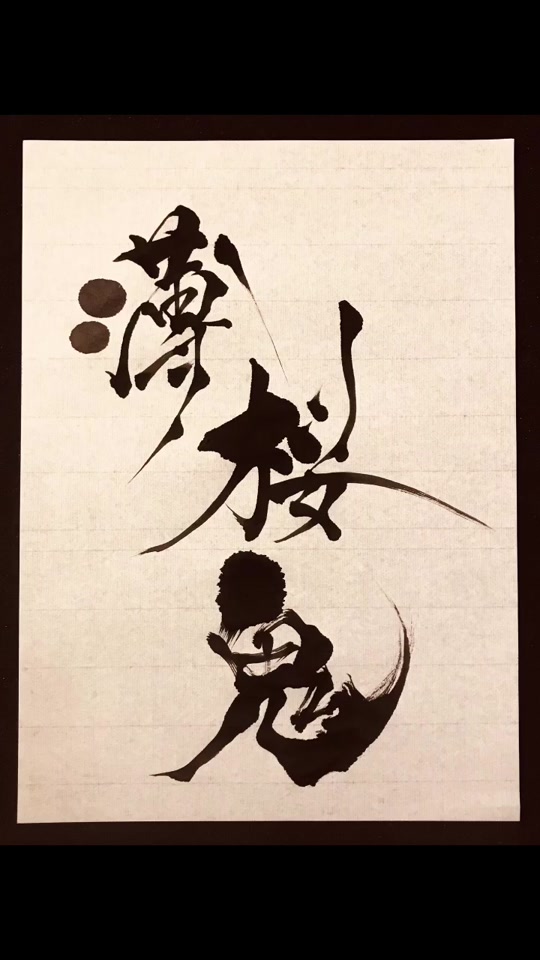 薄桜鬼